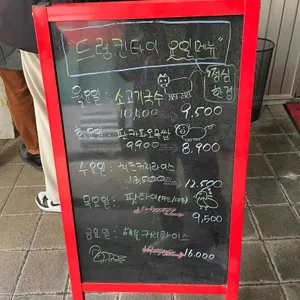 "드렁킨타이 요일메뉴"
점심
한정
월요일 : 소고기국수
10,500 9,500
화요일 : 팟카파오무쌉
9,900 8,900
수요일 : 치킨커리라이스
13,500 12,500
목요일 : 팟타이
9,500
금요일 : 해물커리라이스
16.000